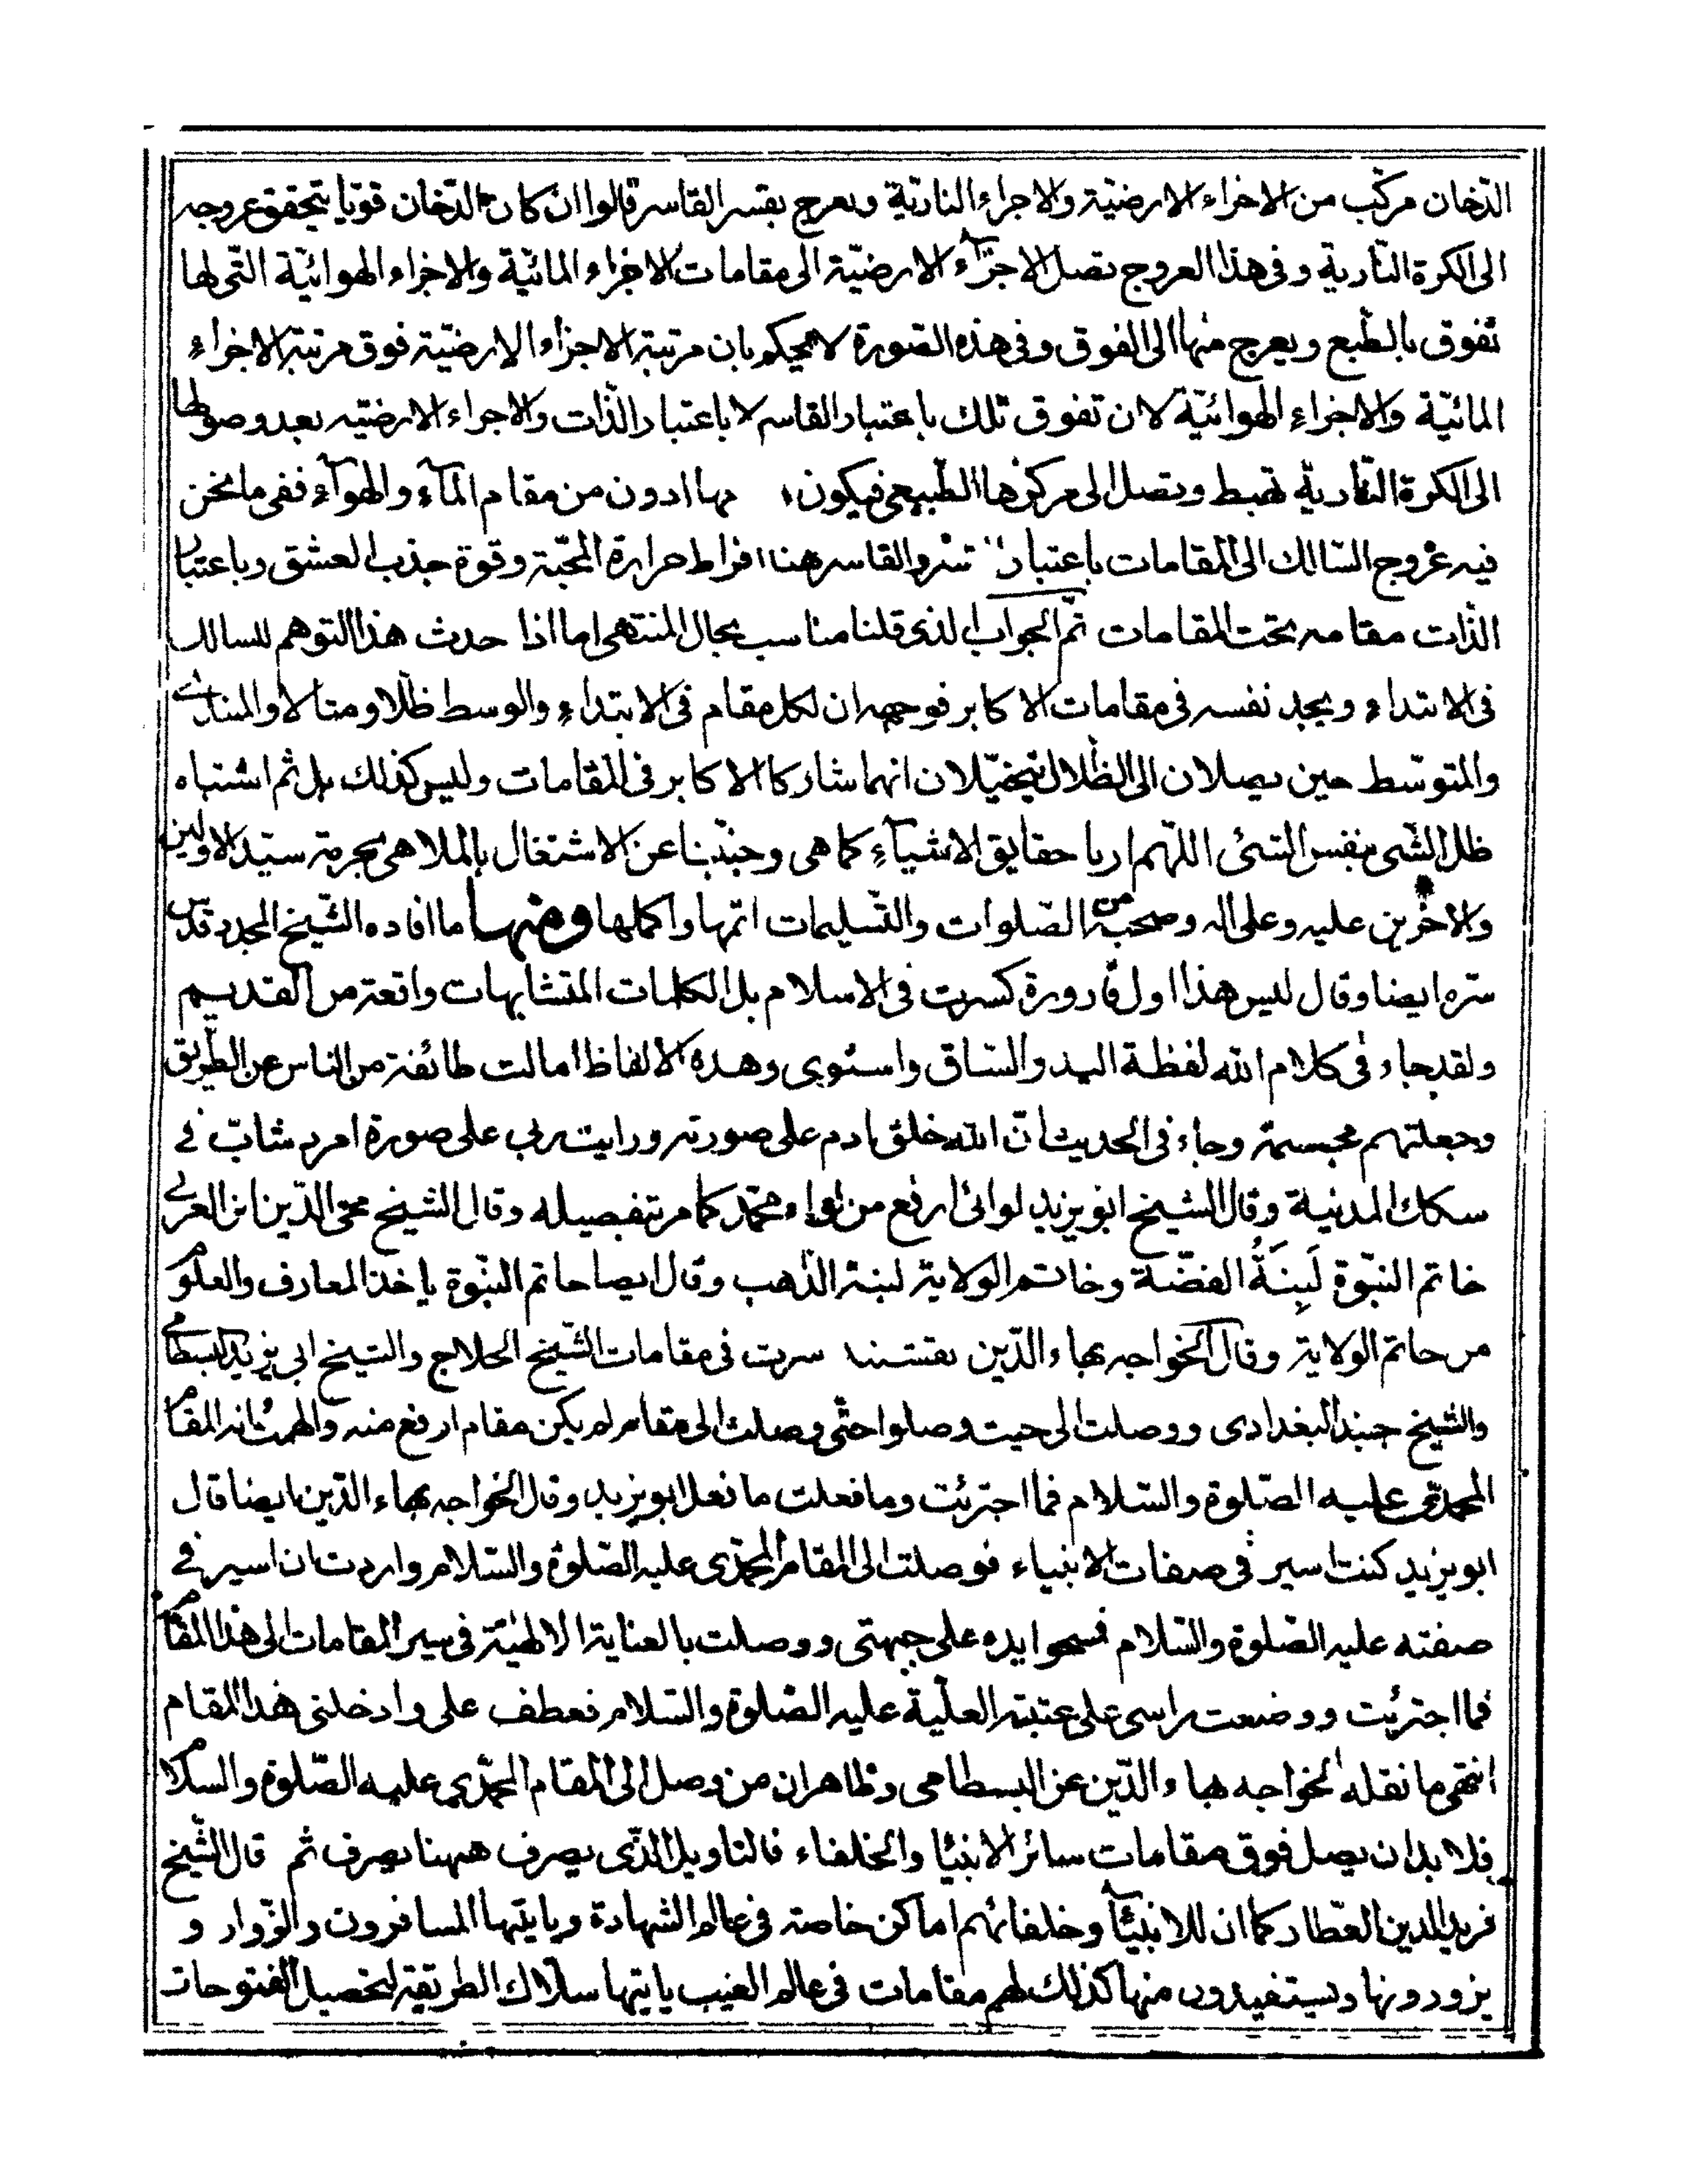 الدّخان مركّب من الاجزاء الارضيّة والاجزاء الناريّة ويعرج بقسر القاسر قالوا ان كان الدّخان قويّا يتحقق عروجه
الى الكرة النّارية وفى هذا العروج تصل الاجزآء الارضيّة الى مقامات الاجزاء المائيّة والاجزاء الهوائيّة التّى لها
تفوق بالطّبع ويعرج منها الى الفوق وفى هذه الصّورة لا يحكم بان مرتبة الاجزاء الارضيّة فوق مرتبة الاجزاء
المائيّة والاجزاء الهوائيّة لان تفوق تلك باعتبار القاسر لا باعتبار الذّات والاجزاء الارضيّه بعد وصولها
الى الكرة النّارية تهبط وتصل الى مركزها الطّبيعى فيكون ادون من مقام المآء والهوآء ففى ما نحن
فيه عروج السّالك الى المقامات باعتبار والقاسر هنا افراط حرارة المحبّة وقوة جذب العشق وباعتبار
الذّات مقامه تحت المقامات ثمّ الجواب الذى قلنا مناسب بحال المنتهى اما اذا حدث هذا التوهم للسالك
فى الابتداء ويجد نفسه فى مقامات الاكابر فوجهه ان لكل مقام فى الابتداء والوسط ظلّا ومثالا والمبتدئ
والمتوسّط حين يصلان الى الظّلال يتخيّلان انهما شاركا الاكابر فى المقامات وليس كذلك بل ثم اشتباه
ظل الشّى بنفس الشئ اللّهم ارنا حقايق الاشيآء كما هى وجنّبنا عن الاشتغال بالملاهى بحرمة سيّد الاولين
والاخرين عليه وعلى اله وصحبه من الصّلوات والتّسليمات اتمها واكملها ومنها ما افاده الشّيخ المجدد قدس
سرّه ايضا وقال ليس هذا اول قارورة كسرت فى الاسلام بل الكلمات المتشابهات واقعة من القديم
ولقد جاء فى كلام الله لفظة اليد والسّاق واستوى وهذه الالفاظ امالت طائفة من الناس عن الطّريق
وجعلتهم مجسمة وجاء فى الحديث انّ الله خلق ادم على صورته ورايت ربى على صورة امرد شابّ فى
سكك المدينة وقال الشيخ ابو يزيد لوائى ارفع من لواء محمّد كما مر تفصيله وقال الشيخ محى الدّين ابن العربى
خاتم النبّوة لَبِنَةُ الفضّة وخاتم الولاية لبنة الذّهب وقال ايضا خاتم النبّوة ياخذ المعارف والعلوم
من خاتم الولاية وقال الخواجه بهاء الدّين نقشبند سرت فى مقامات الشّيخ الحلاج والشيخ ابى يزيد البسطامى
والشيخ جنيد البغدادى ووصلت الى حيث وصلوا حتّى وصلت الى مقام لم يكن مقام ارفع منه والهمت انه المقام
المحمدى عليه الصّلوة والسّلام فما اجترئت وما فعلت ما فعل ابو يزيد وقال الخواجه بهاء الدّين ايضا قال
ابو يزيد كنت اسير فى صفات الانبياء فوصلت الى المقام المحمّدى عليه الصّلوة والسّلام واردت ان اسير فى
صفته عليه الصّلوة والسّلام فسحوا يده على جبهتى ووصلت بالعناية الالهيّة فى سير المقامات الى هذا المقام
فما اجترئت ووضعت راسى على عتبته العليّة عليه الصّلوة والسّلام فعطف على وادخلنى هذا المقام
انتهى ما نقله الخواجه بهاء الدّين عن البسطامى وظاهر ان من وصل الى المقام المحمّدى عليه الصّلوة والسلام
فلا بد ان يصل فوق مقامات سائر الانبيا والخلفاء فالتاويل الذّى يصرف ههنا يصرف ثم قال الشّيخ
فريد الدين العطار كما ان للانبيآ وخلفائهم اماكن خاصة فى عالم الشهادة وياتيها المسافرون والزّوار و
يزورونها ويستفيدون منها كذلك لهم مقامات فى عالم الغيب ياتيها سلاك الطريقة لتحصيل الفتوحات